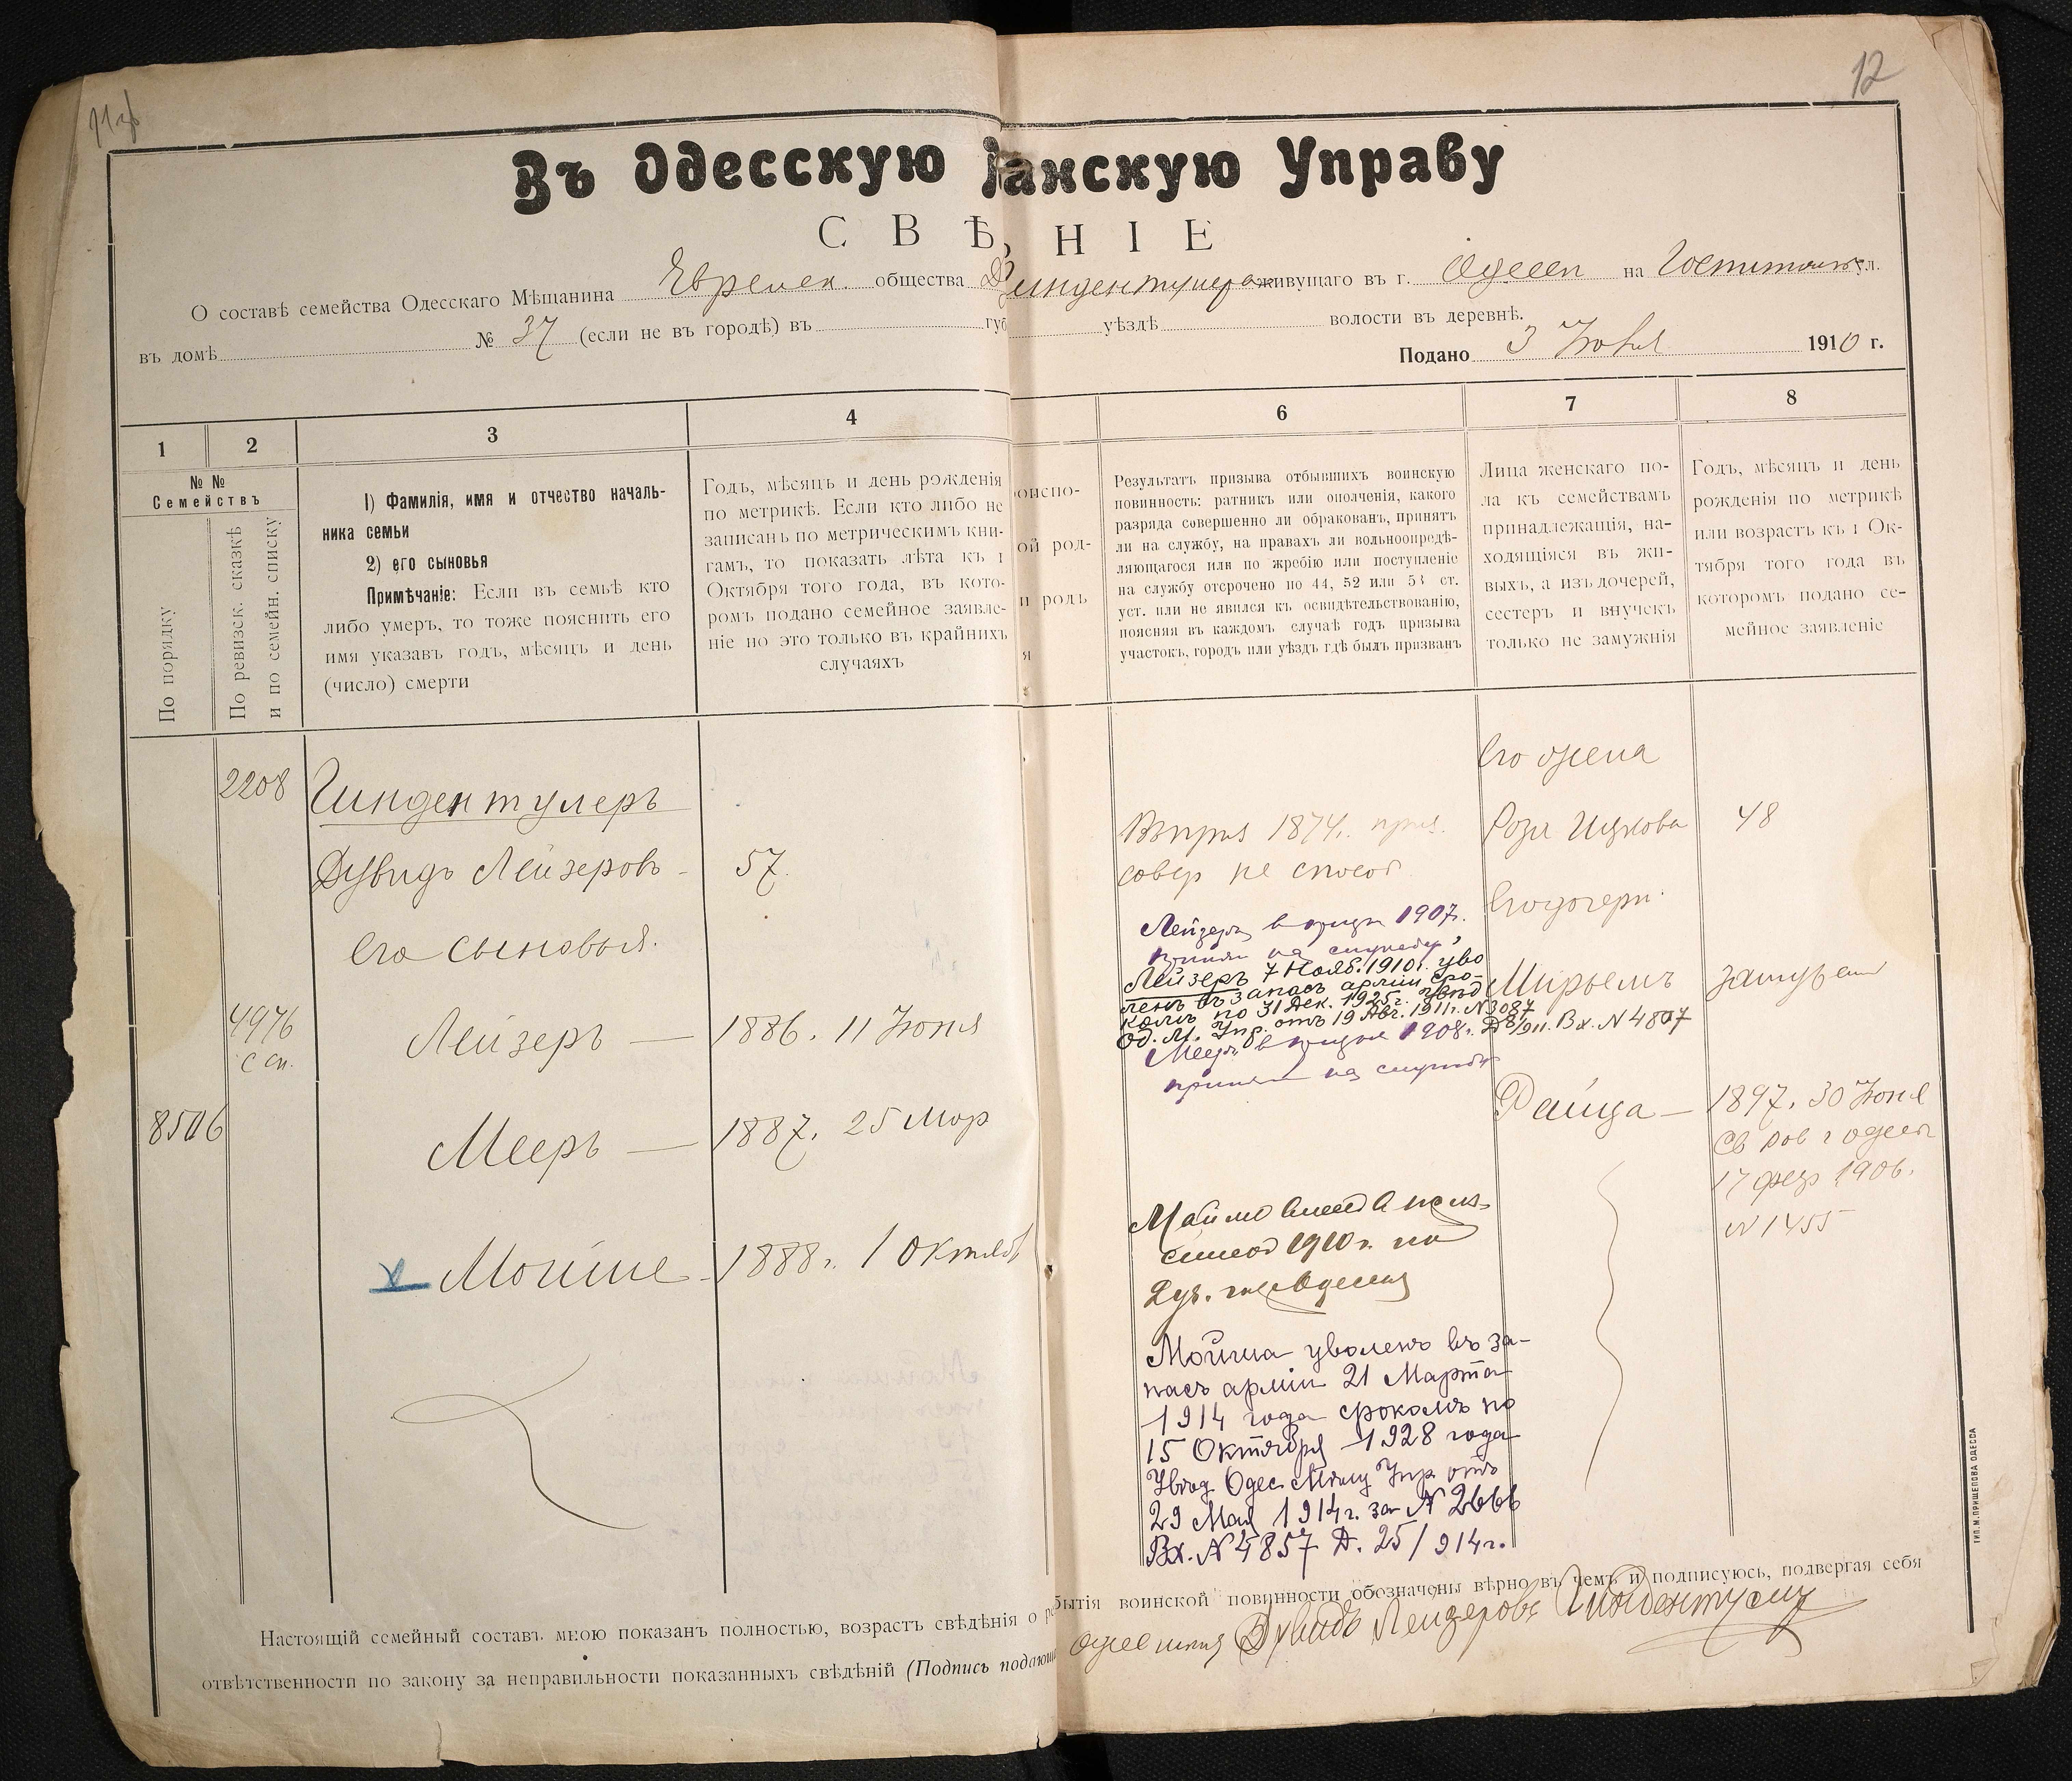 12
Въ Одесскую анскую Управу
СВѢ НІЕ
О составѣ семейства Одесскаго Мѣщанина Евреиск. общества живущаго въ г. Одессѣ на ул.
въ домѣ № 37 (если не въ городѣ) въ губ уѣздѣ волости въ деревнѣ.
Подано 3 1910 г.
1 2 3 4 6 7 8
№ №
Семействъ
По порядку
По ревизск. сказкѣ
и по семейн. списку
1) Фамилія, имя и отчество началь-
ника семьи
2) его сыновья
Примѣчаніе: Если въ семьѣ кто
либо умеръ, то тоже пояснить его
имя указавъ годъ, мѣсяцъ и день
(число) смерти
Годъ, мѣсяцъ и день рожденія
по метрикѣ. Если кто либо не
записанъ по метрическимъ кни-
гамъ, то показать лѣта къ 1
Октября того года, въ кото-
ромъ подано семейное заявле-
ніе но это только въ крайнихъ
случаяхъ
оиспо-
ой род-
и родъ
я
Результатъ призыва отбывшихъ воинскую
повинность: ратникъ или ополченія, какого
разряда совершенно ли обракованъ, принятъ
ли на службу, на правахъ ли вольноопредѣ-
ляющагося или по жребію или поступленіе
на службу отсрочено по 44, 52 или 53 ст.
уст. или не явился къ освидѣтельствованію,
поясняя въ каждомъ случаѣ годъ призыва
участокъ, городъ или уѣздъ гдѣ былъ призванъ
Лица женскаго по-
ла къ семействамъ
принадлежащія, на-
ходящіяся въ жи-
выхъ, а изъ дочерей,
сестеръ и внучекъ
только не замужнія
Годъ, мѣсяцъ и день
рожденія по метрикѣ
или возрастъ къ 1 Ок-
тября того года въ
которомъ подано се-
мейное заявленіе
2208 Гиндентулеръ
Дувидъ Лейзеровъ - 57.
Его сыновья.
4976 Лейзеръ — 1886. 11 Іюня
с сп.
8506 Мееръ — 1887. 25 Мар
Мойше - 1888 г. 1 Октяб
1874 г.
совер не способ
Лейзеръ в 1907 г.
принят на службу
Лейзеръ 7 Нояб. 1910 г. уво
ленъ въ запасъ арміи сро-
комъ по 31 Дек. 1925 г. Увѣд
Од. М. Упр. отъ 19 Авг. 1911 г. N 3087
Д 8/911. Вх. N 4807
Мееръ в 1908 г.
принят на службу
1910 г. по
Мойша уволенъ въ за-
пасъ арміи 21 Марта
1914 года срокомъ по
15 Октября 1928 года
Увѣд Одес. Мѣщ Упр отъ
29 Мая 1914 г. за N 2666
Вх. N 4857 Д. 25/914 г.
Его жена
Роза Ицкова 48
Его дочери
Мирьемъ замужем
Фейга — 1897. 30 Іюня
Св Рав г Одессы
17 фев 1906.
N 1455
Настоящій семейный составъ мною показанъ полностью, возрастъ свѣдѣнія о бытія воинской повинности обозначены вѣрно въ чемъ и подписуюсь, подвергая себя
отвѣтственности по закону за неправильности показанныхъ свѣдѣній (Подпись подающ Дувидъ Лейзеровъ
ТИП. М. ПРИЩЕПОВА ОДЕССА